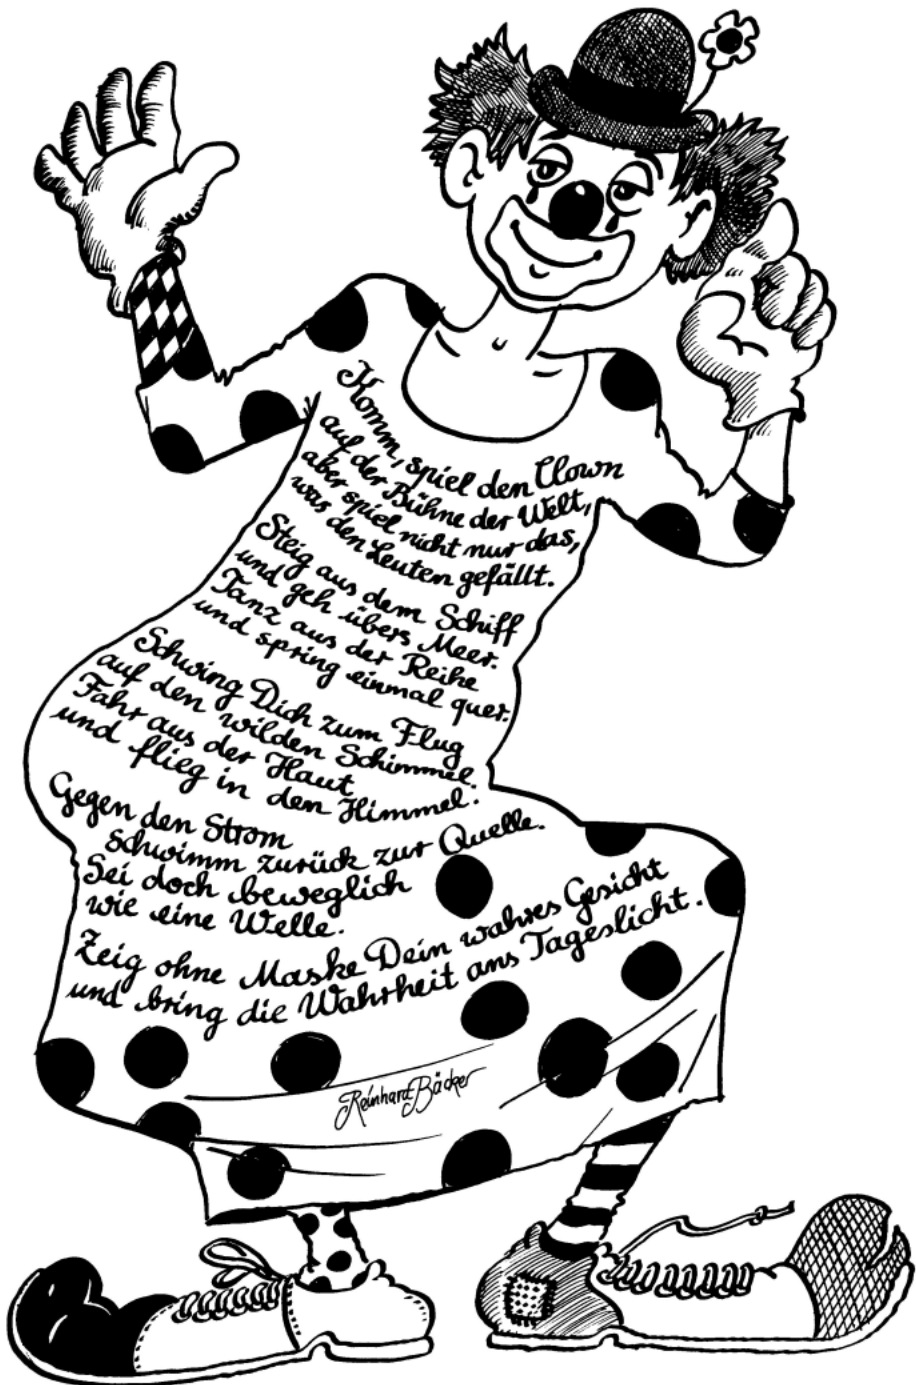 Komm, spiel den Clown
auf der Bühne der Welt,
aber spiel nicht nur das,
was den Leuten gefällt.
Steig aus dem Schiff
und geh übers Meer.
Tanz aus der Reihe
und spring einmal quer.
Schwing Dich zum Flug
auf den wilden Schimmel.
Fahr aus der Haut
und flieg in den Himmel.
Gegen den Strom
schwimm zurück zur Quelle.
Sei doch beweglich
wie eine Welle.
Zeig ohne Maske Dein wahres Gesicht
und bring die Wahrheit ans Tageslicht.
Reinhard Bäcker